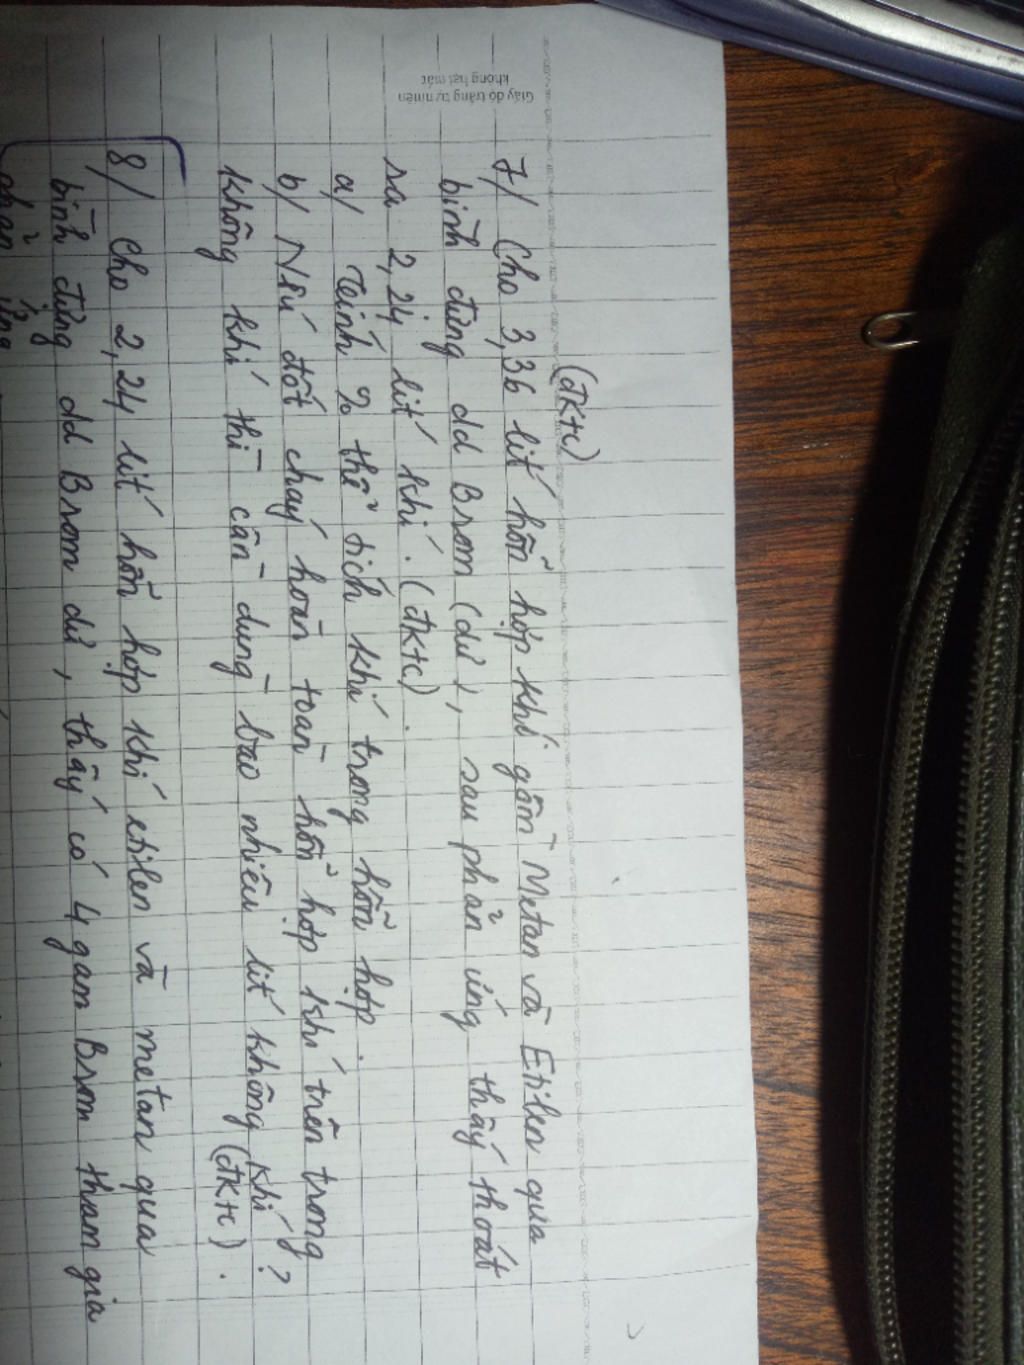 Giấy độ trắng tự nhiên
không hại mắt
(đktc)
7/ Cho 3,36 lít hỗn hợp khí gồm Metan và Etilen qua
bình đựng dd Brom (dư), sau phản ứng thấy thoát
ra 2,24 lít khí. (đktc).
a/ Tính % thể tích khí trong hỗn hợp.
b/ Nếu đốt cháy hoàn toàn hỗn hợp khí trên trong
không khí thì cần dùng bao nhiêu lít không khí?
(đktc).
8/ Cho 2,24 lít hỗn hợp khí etilen và metan qua
bình đựng dd Brom dư, thấy có 4 gam Brom tham gia
phản ứng